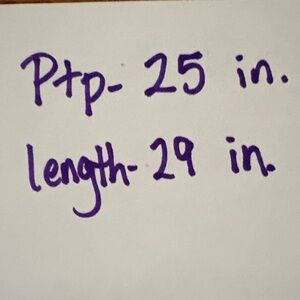 Ptp- 25 in.
length- 29 in.